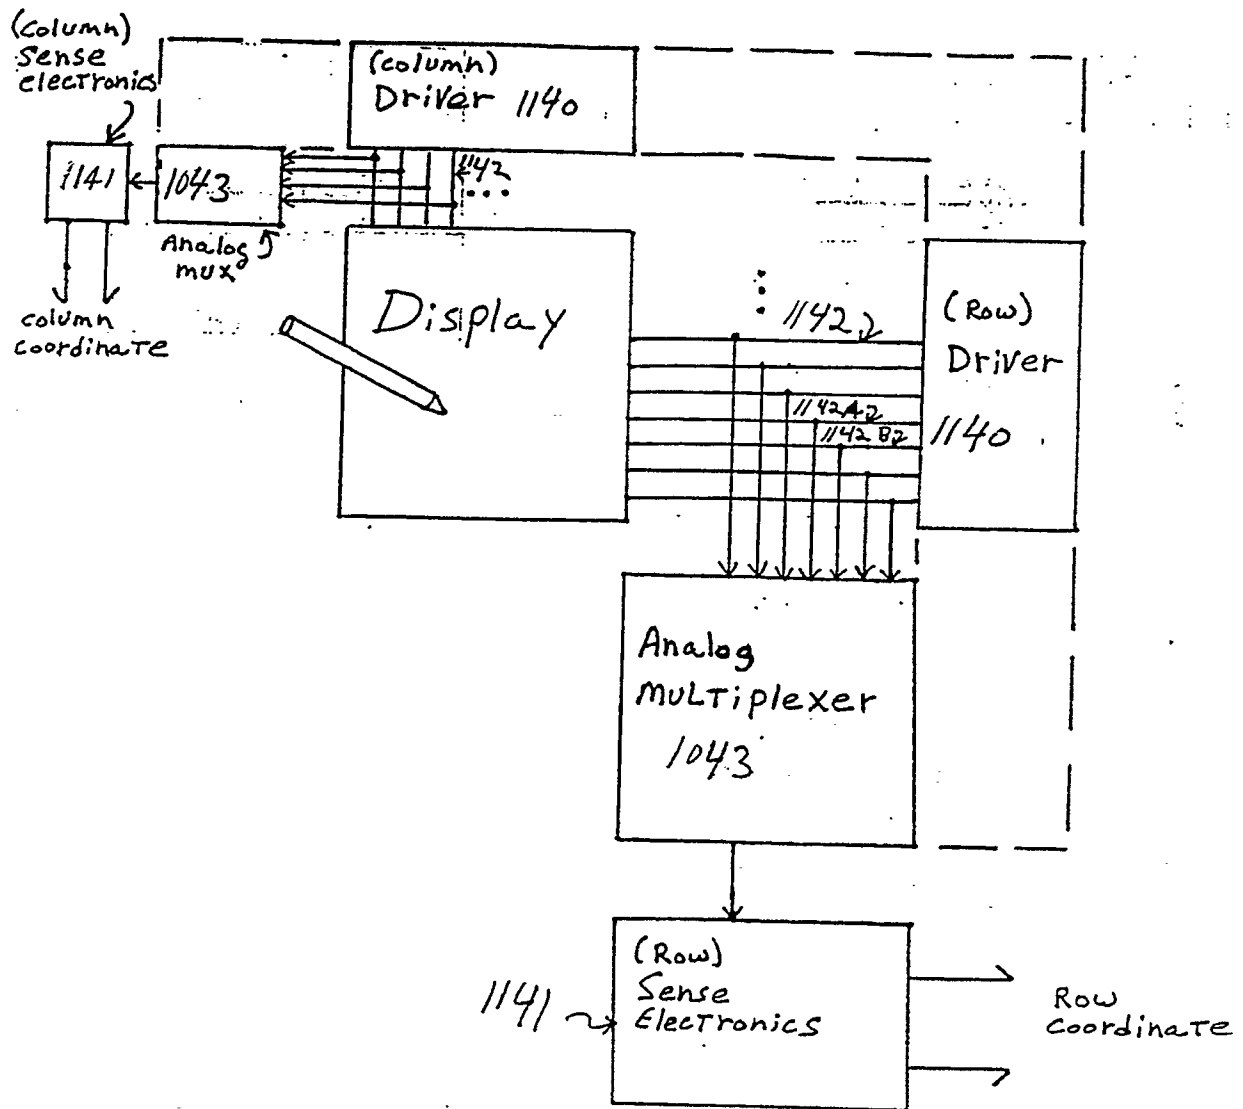 (Column)
Sense
electronics
(Column)
Driver 1140
1141
1043
1142
Analog
mux
column
coordinate
Display
1142
(Row)
Driver
1140
1142A
1142B
Analog
MULTiplexer
1043
(Row)
Sense
Electronics
1141
Row
coordinate